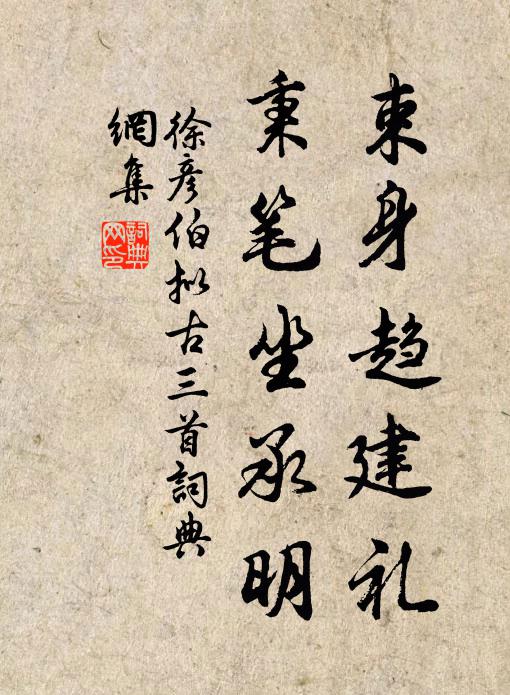 束身趋建礼
秉笔坐承明
徐彦伯拟古三首詞典
網集
詞典
网印